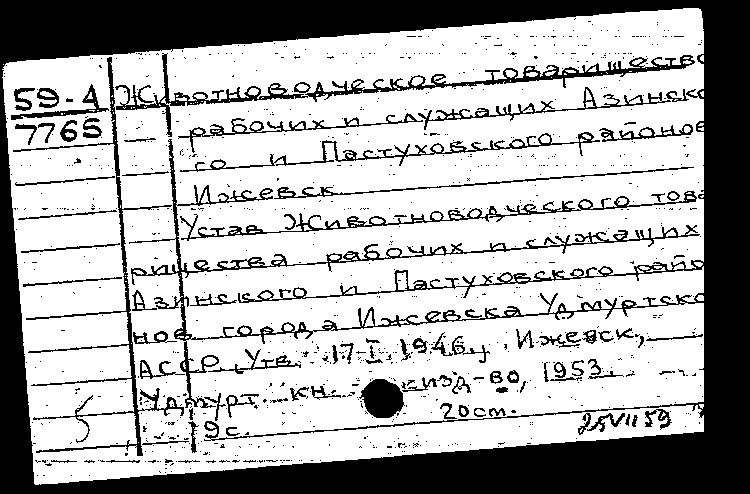 59-4 Животноводческое товарищество
7765 рабочих и служащих Азинско
го и Пастуховского районов
Ижевск
Устав Животноводческого това
рищества рабочих и служащих
Азинского и Пастуховского райо
нов города Ижевска Удмуртско
АССР Утв. 17 I 1946., Ижевск,
Удмурт. кн. изд-во, 1953.
5 19с. 20 cm.
25 VII 59